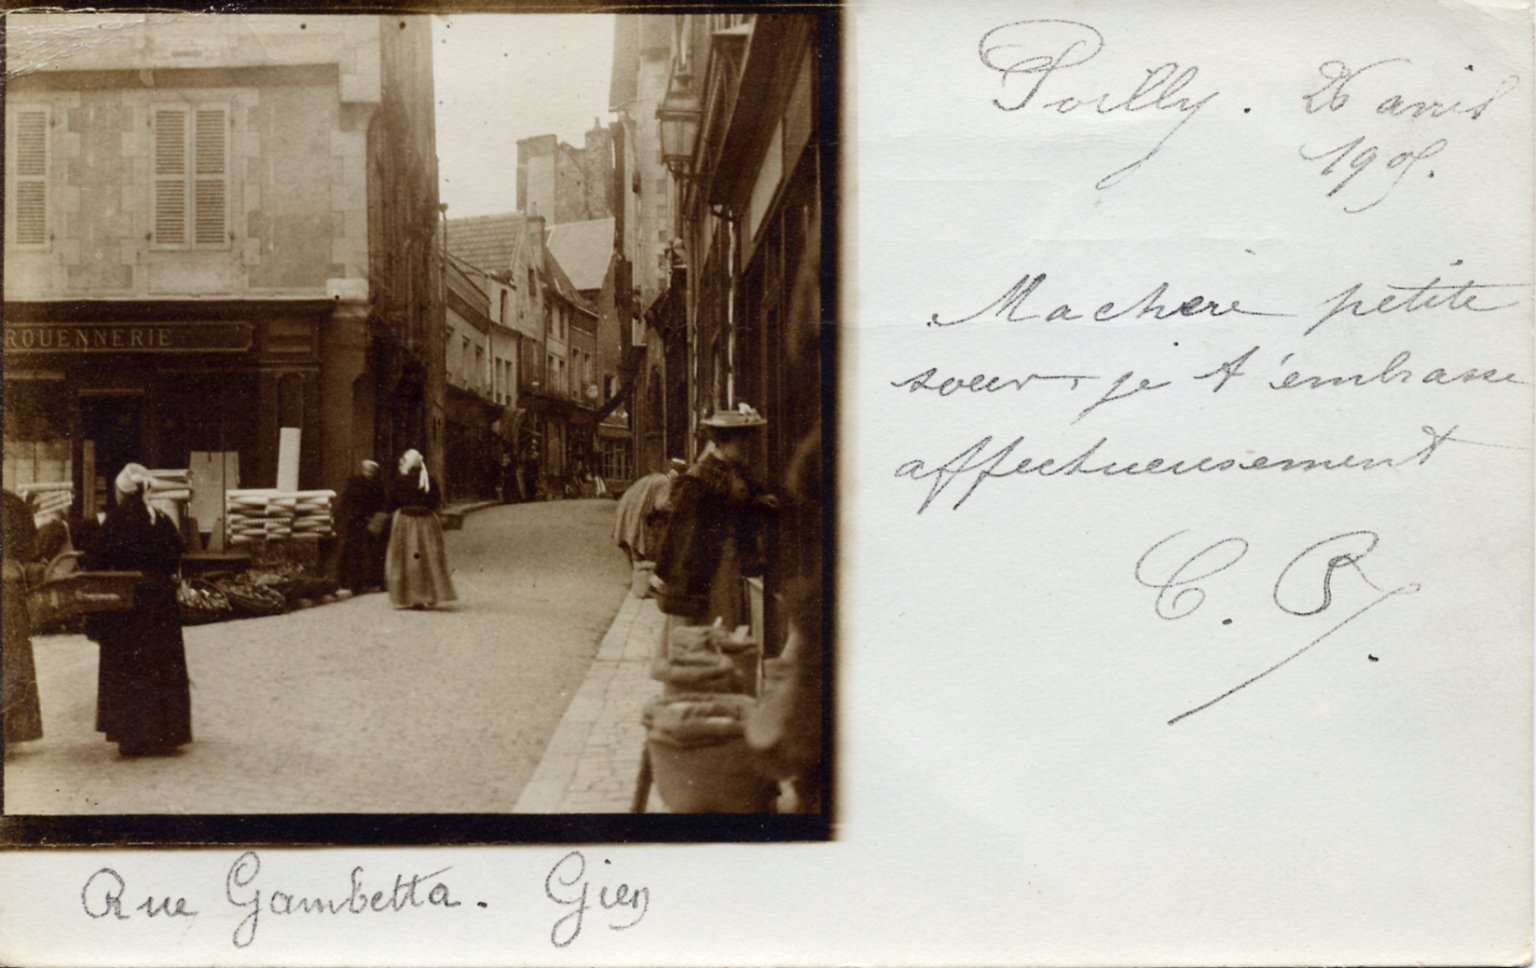 ROUENNERIE
Poilly. 26 avril
1905.
Ma chère petite
soeur je t'embrasse
affectueusement
C. R.
Rue Gambetta. Gien